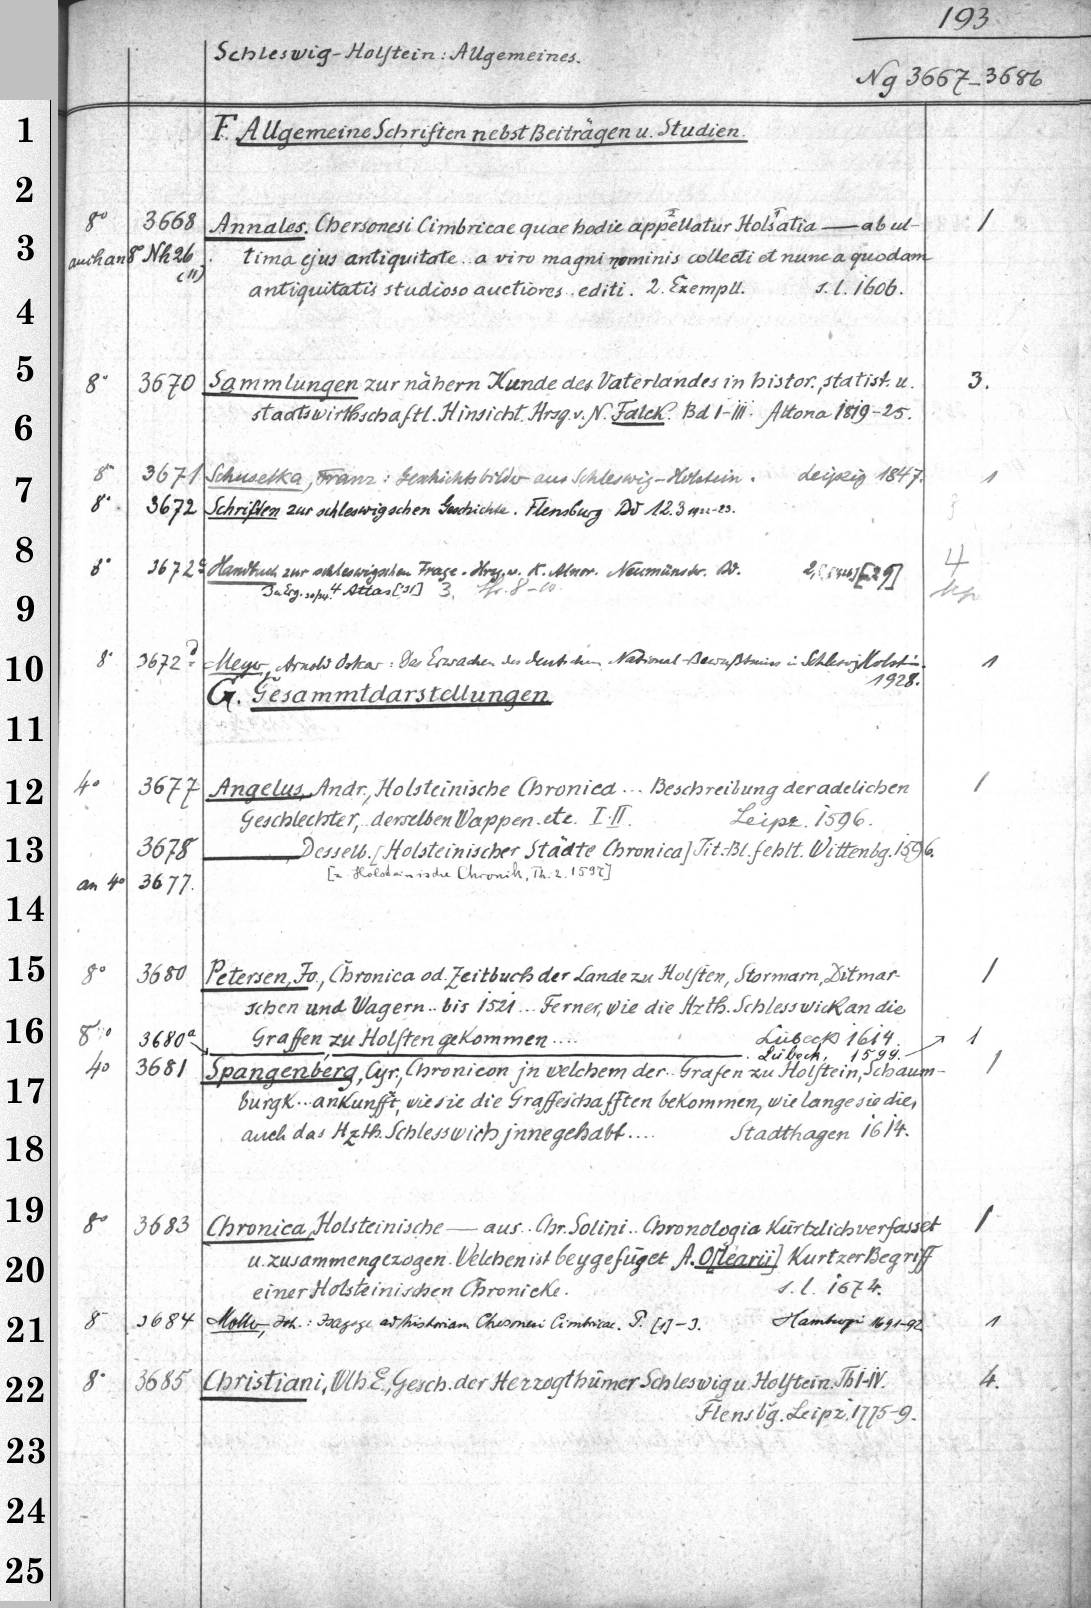 193
Schleswig-Holstein: Allgemeines.
Ng 3667-3686
1
F. Allgemeine Schriften nebst Beiträgen u. Studien.
2
8° 3668 Annales. Chersonesi Cimbricae quae hodie appellatur Holsatia — ab ul- 1
3
auch an 8° Nh 26 (11) tima ejus antiquitate .. a viro magni nominis collecti et nunc a quodam
antiquitatis studioso auctiores editi. 2. Exempll. s. l. 1606.
4
5
8° 3670 Sammlungen zur nähern Kunde des Vaterlandes in histor., statist. u. 3.
staatswirthschaftl. Hinsicht. Hrsg. v. N. Falck. Bd I-III. Altona 1819-25.
6
7
8° 3671 Schuselka, Franz: Geschichtsbilder aus Schleswig-Holstein. Leipzig 1847. 1
8° 3672 Schriften zur schleswigschen Geschichte. Flensburg Bd 1.2.3 1922-23. 3
8
8° 3672c Handbuch zur schleswigschen Frage. Hrsg. v. K. Alnor. Neumünster. Bd. [29] 4
4 Atlas [31] 3. 8-10.
9
10
8° 3672d Meyer, Arnold Oskar: Das Erwachen des deutschen National-Bewußtseins in Schleswig-Holstein. 1
1928.
G. Gesammtdarstellungen
11
12
4° 3677 Angelus, Andr., Holsteinische Chronica ... Beschreibung der adelichen 1
Geschlechter, derselben Wappen. etc. I-II. Leipz. 1596.
13
3678 ——— Desselb. [Holsteinischer Städte Chronica] Tit.-Bl. fehlt. Wittenbg. 1596.
[= Holsteinische Chronik, Th. 2. 1592]
an 4° 3677.
14
15
8° 3680 Petersen, Jo., Chronica od. Zeitbuch der Lande zu Holsten, Stormarn, Ditmar- 1
schen und Wagern .. bis 1521 ... Ferner, wie die Hzth. Schlesswick an die
16
Graffen zu Holsten gekommen .... Lübeck 1614.
8° 3680a ——— , ——— . Lübeck, 1599. 1
4° 3681 Spangenberg, Cyr., Chronicon jn welchem der .. Grafen zu Holstein, Schaum- 1
17
burgk .. ankunfft, wie sie die Graffeschafften bekommen, wie lange sie die,
auch das Hzth. Schlesswich jnnegehabt .... Stadthagen 1614.
18
19
8° 3683 Chronica, Holsteinische — aus .. Chr. Solini .. Chronologia Kürtzlich verfasset 1
u. zusammengezogen. Welchen ist beygefüget A. O[learii] Kurtzer Begriff
20
einer Holsteinischen Chronicke. s. l. 1674.
21
8° 3684 Moller, Joh.: Isagoge ad historiam Chersonesi Cimbricae. P. [1]-3. Hamburgi 1691-92 1
22
8° 3685 Christiani, Wlh. E., Gesch. der Herzogthümer Schleswig u. Holstein. Th I-IV. 4.
Flensbg. Leipz. 1775-9.
23
24
25